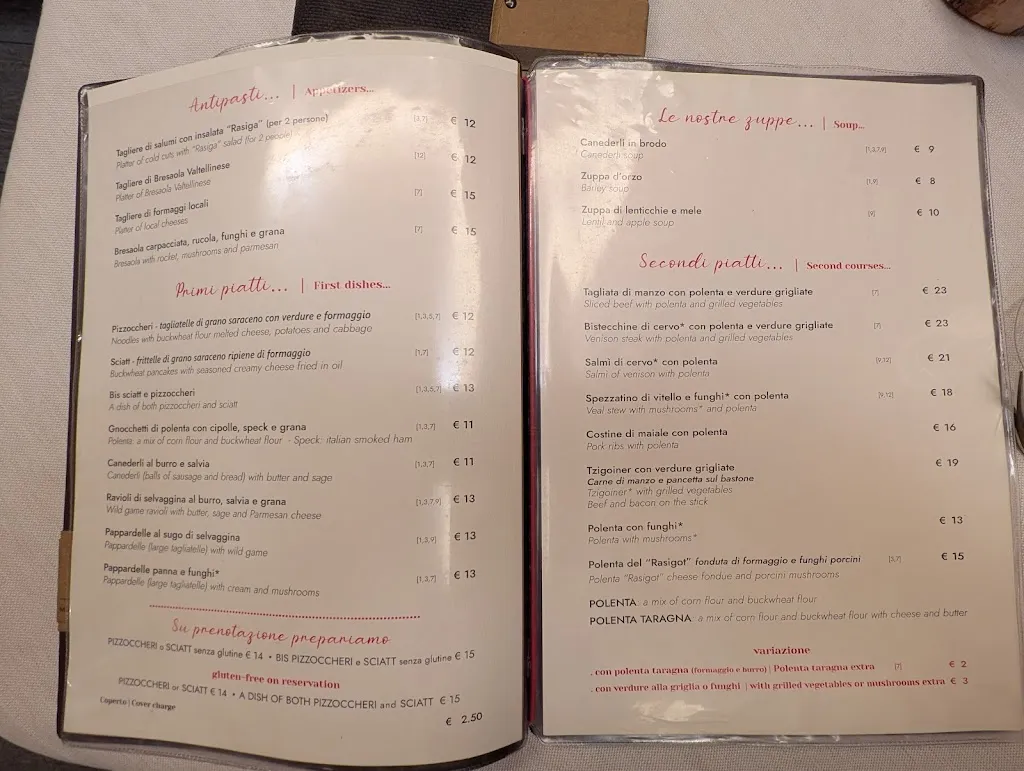 Antipasti... | Appetizers...
Tagliere di salumi con insalata "Rasiga" (per 2 persone) [3,7] € 12
Platter of cold cuts with "Rasiga" salad (for 2 people)
Tagliere di Bresaola Valtellinese [12] € 12
Platter of Bresaola Valtellinese
Tagliere di formaggi locali [7] € 15
Platter of local cheeses
Bresaola carpacciata, rucola, funghi e grana [7] € 15
Bresaola with rocket, mushrooms and parmesan
Primi piatti... | First dishes...
Pizzoccheri - tagliatelle di grano saraceno con verdure e formaggio [1,3,5,7] € 12
Noodles with buckwheat flour melted cheese, potatoes and cabbage
Sciatt - frittelle di grano saraceno ripiene di formaggio [1,7] € 12
Buckwheat pancakes with seasoned creamy cheese fried in oil
Bis sciatt e pizzoccheri [1,3,5,7] € 13
A dish of both pizzoccheri and sciatt
Gnocchetti di polenta con cipolle, speck e grana [1,3,7] € 11
Polenta: a mix of corn flour and buckwheat flour - Speck: italian smoked ham
Canederli al burro e salvia [1,3,7] € 11
Canederli (balls of sausage and bread) with butter and sage
Ravioli di selvaggina al burro, salvia e grana [1,3,7,9] € 13
Wild game ravioli with butter, sage and Parmesan cheese
Pappardelle al sugo di selvaggina [1,3,9] € 13
Pappardelle (large tagliatelle) with wild game
Pappardelle panna e funghi* [1,3,7] € 13
Pappardelle (large tagliatelle) with cream and mushrooms
Su prenotazione prepariamo
PIZZOCCHERI o SCIATT senza glutine € 14 • BIS PIZZOCCHERI e SCIATT senza glutine € 15
gluten-free on reservation
PIZZOCCHERI or SCIATT € 14 • A DISH OF BOTH PIZZOCCHERI and SCIATT € 15
Coperto | Cover charge € 2.50
Le nostre zuppe... | Soup...
Canederli in brodo [1,3,7,9] € 9
Canederli soup
Zuppa d'orzo [1,9] € 8
Barley soup
Zuppa di lenticchie e mele [9] € 10
Lentil and apple soup
Secondi piatti... | Second courses...
Tagliata di manzo con polenta e verdure grigliate [7] € 23
Sliced beef with polenta and grilled vegetables
Bistecchine di cervo* con polenta e verdure grigliate [7] € 23
Venison steak with polenta and grilled vegetables
Salmì di cervo* con polenta [9,12] € 21
Salmi of venison with polenta
Spezzatino di vitello e funghi* con polenta [9,12] € 18
Veal stew with mushrooms* and polenta
Costine di maiale con polenta € 16
Pork ribs with polenta
Tzigoiner con verdure grigliate € 19
Carne di manzo e pancetta sul bastone
Tzigoiner* with grilled vegetables
Beef and bacon on the stick
Polenta con funghi* € 13
Polenta with mushrooms*
Polenta del "Rasigot" fonduta di formaggio e funghi porcini [3,7] € 15
Polenta "Rasigot" cheese fondue and porcini mushrooms
POLENTA: a mix of corn flour and buckwheat flour
POLENTA TARAGNA: a mix of corn flour and buckwheat flour with cheese and butter
variazione
. con polenta taragna (formaggio e burro) | Polenta taragna extra [7] € 2
. con verdure alla griglia o funghi | with grilled vegetables or mushrooms extra € 3